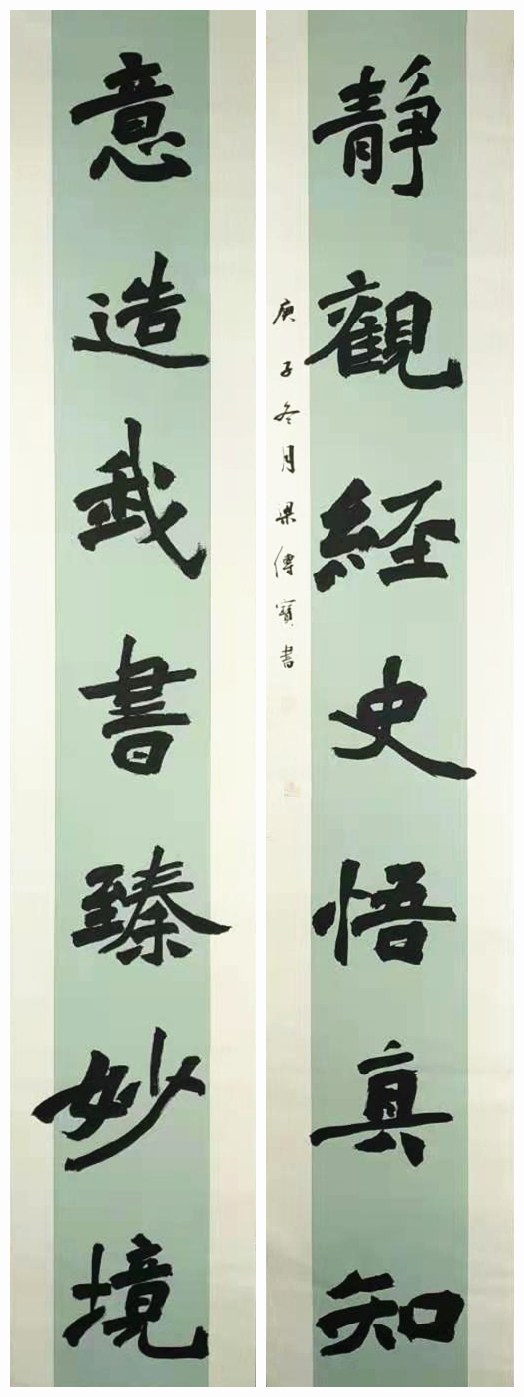 靜觀經史悟真知
庚子冬月梁傳寶書
意造我書臻妙境